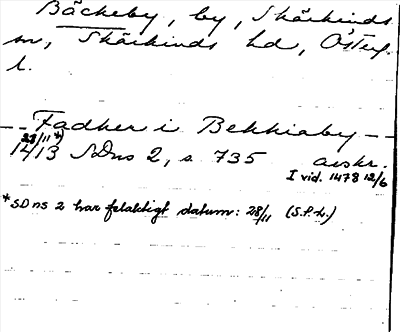 Bäckeby, by, Skärkinds
sn, Skärkinds hd, Österg.
l.
-- Fadher i Bekkiaby --
28/11 *)
1413 SDns 2, s. 735 avskr.
I vid. 1478 12/6
* SD ns 2 har felaktigt datum: 28/11 (S.P.L.)